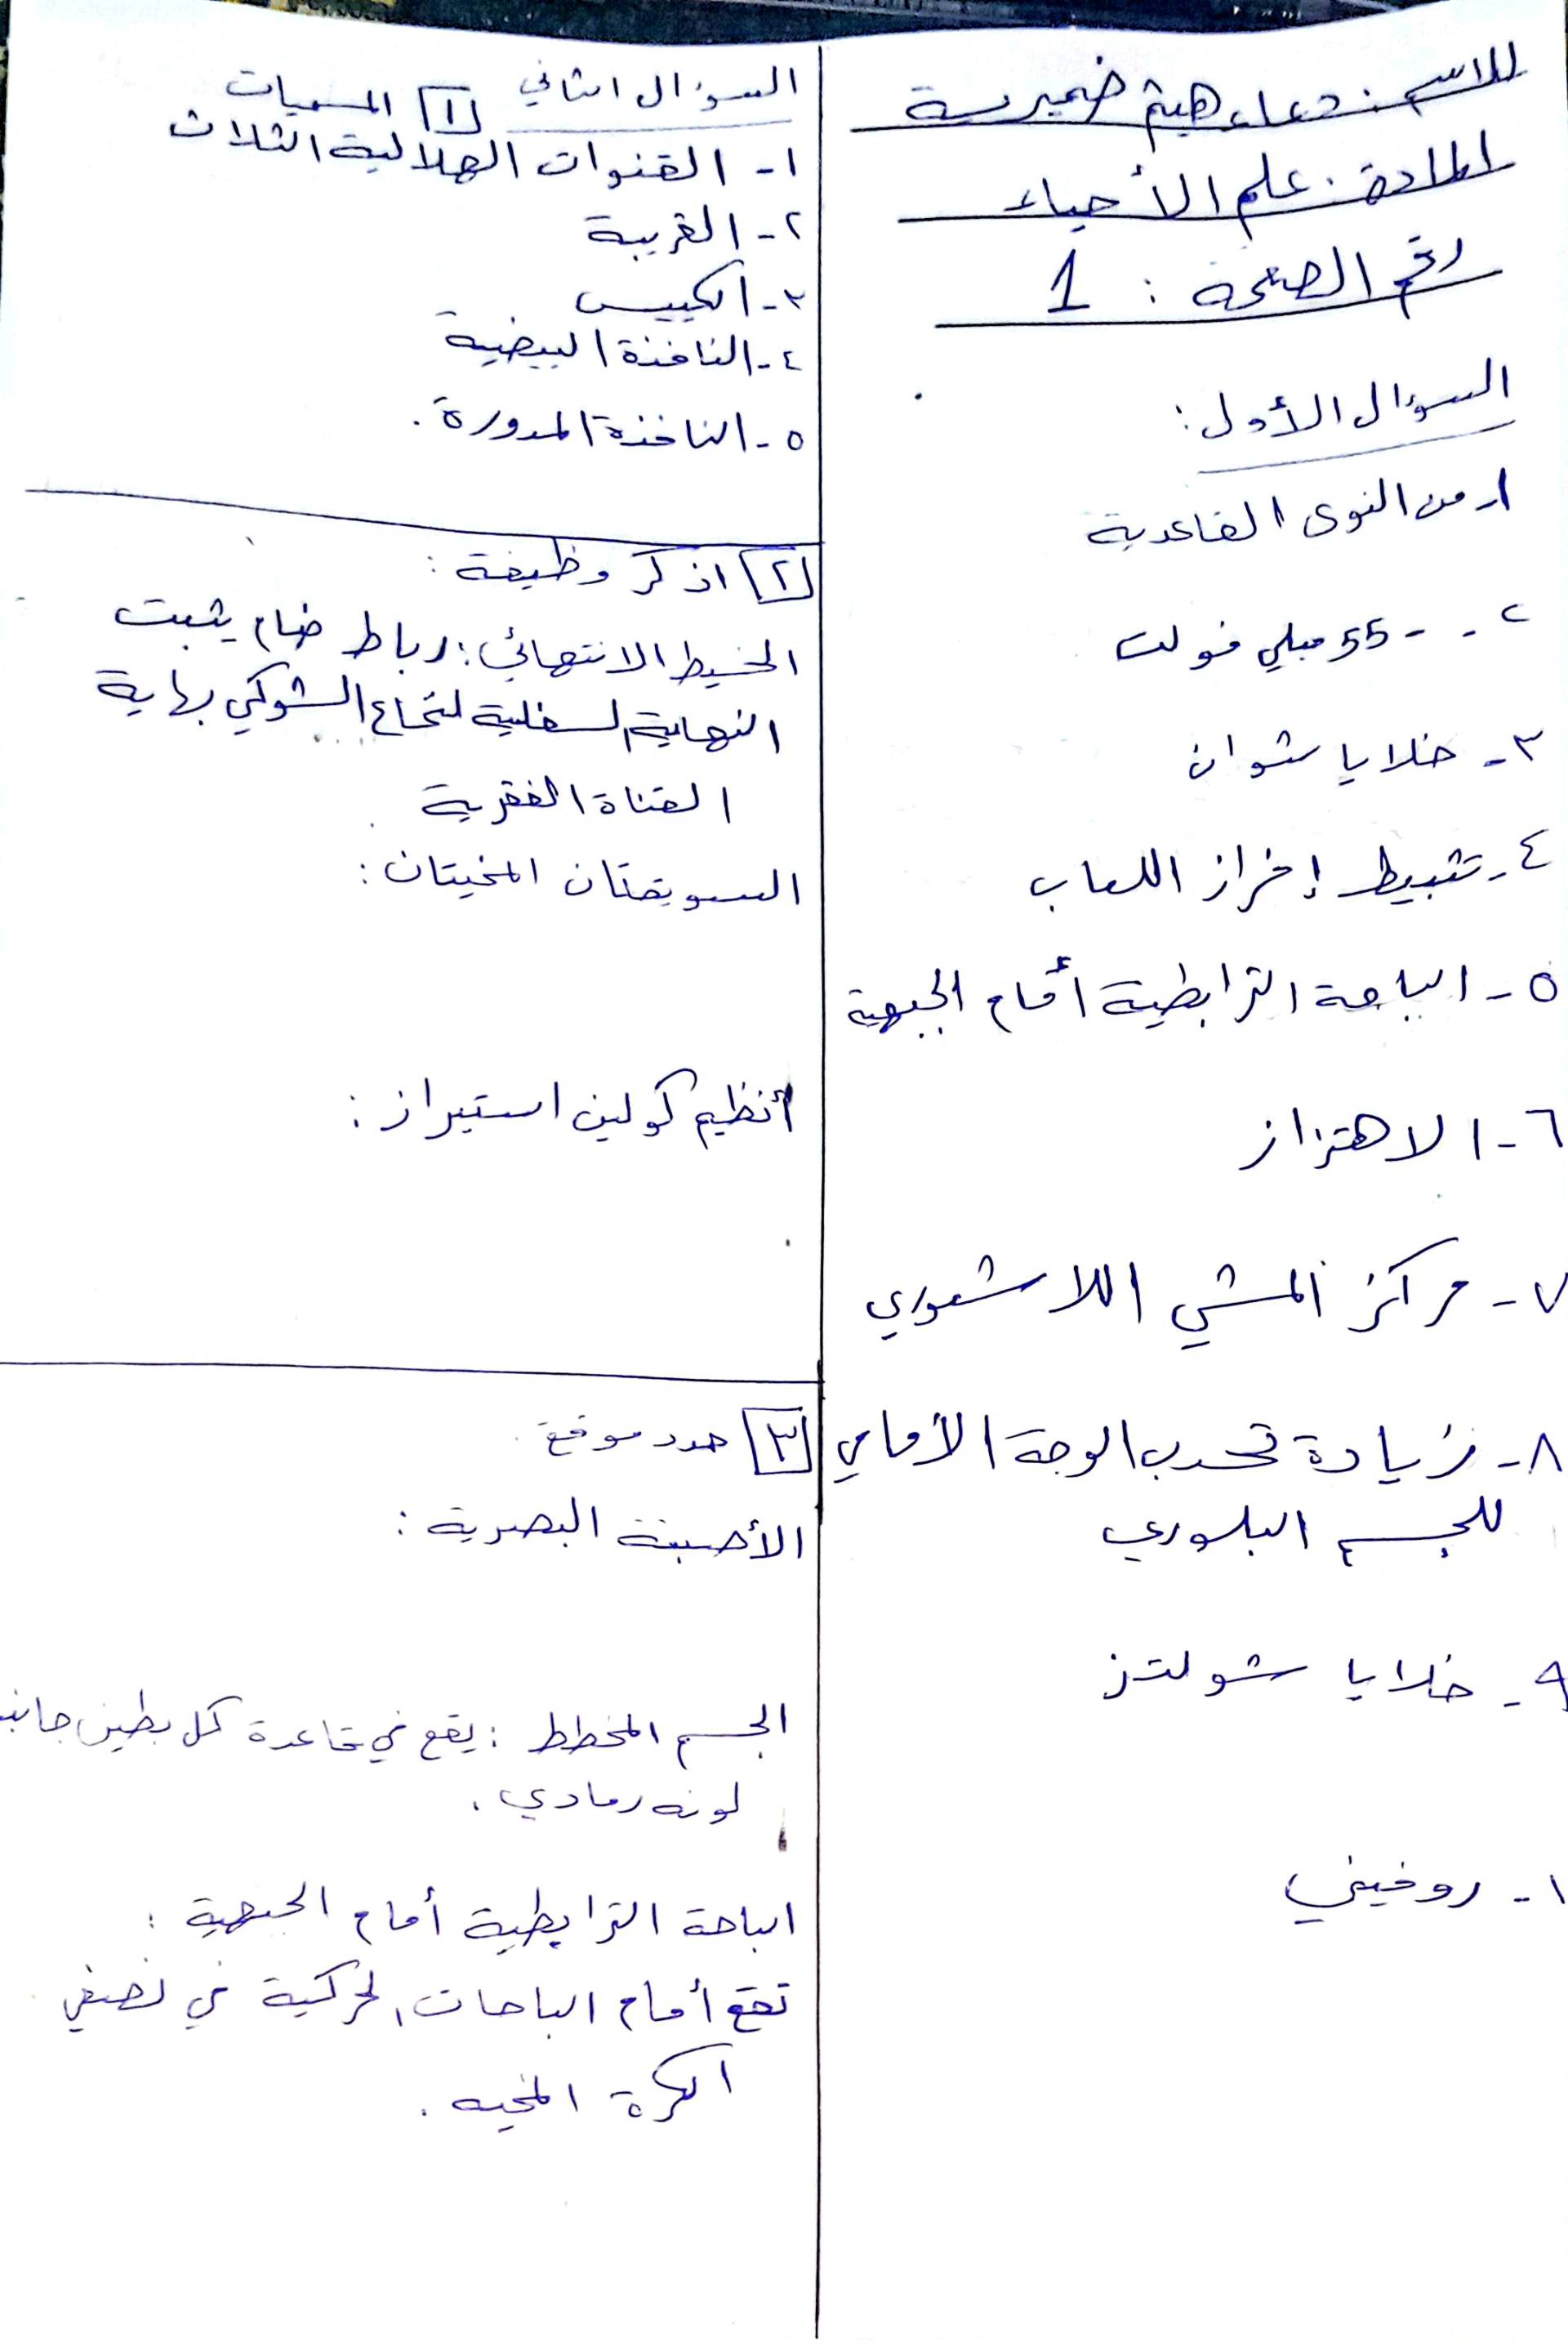 الاسم: دعاء هيثم ضميرية
المادة: علم الأحياء
رقم الصفحة: 1
السؤال الأول:
١- من النوى القاعدية
٢- -55 ميلي فولت
٣- خلايا شوان
٤- تثبيط إفراز اللعاب
٥- الباحة الترابطية أمام الجبهية
٦- الاهتزاز
٧- مركز المشي اللاشعوري
٨- زيادة تحدب الوجة الأمامي
للجسم البلوري
٩- خلايا شولتز
١- روفيني
السؤال الثاني ١ المسميات
١- القنوات الهلالية الثلاث
٢- القريبة
٣- الكييس
٤- النافذة البيضية
٥- النافذة المدورة.
٢ اذكر وظيفة:
الخيط الانتهائي: رباط ضام يثبت
النهاية السفلية لنخاع الشوكي بهاية
القناة الفقرية
السويقتان المخيتان:
أنظيم كولين استيراز:
٣ حدد موقع
الأصبغة البصرية:
الجسم المخطط: يقع في قاعدة كل بطين جانب
لونه رمادي.
الباحة الترابطية أمام الجبهية:
تقع أمام الباحات الحركية في نصفي
الكرة المخيه.